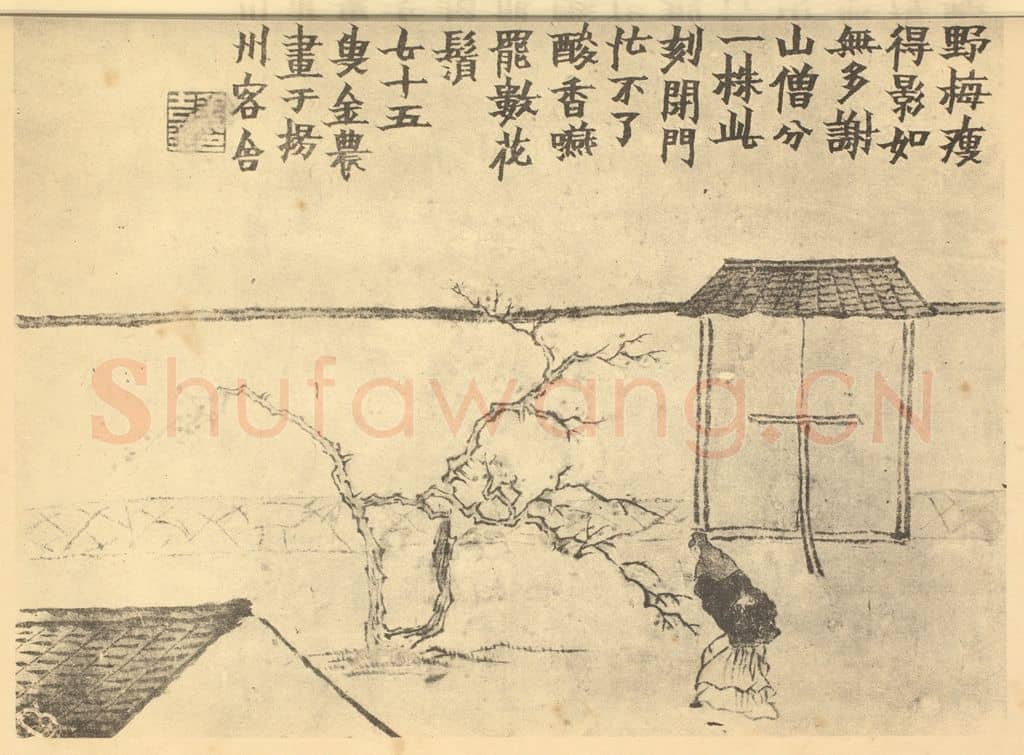 野梅瘦
得影如
無多謝
山僧分
一株此
刻閉門
忙不了
酸香嚥
罷數花
鬚
七十五
叟金農
畫于揚
州客舍
Shufawang.CN